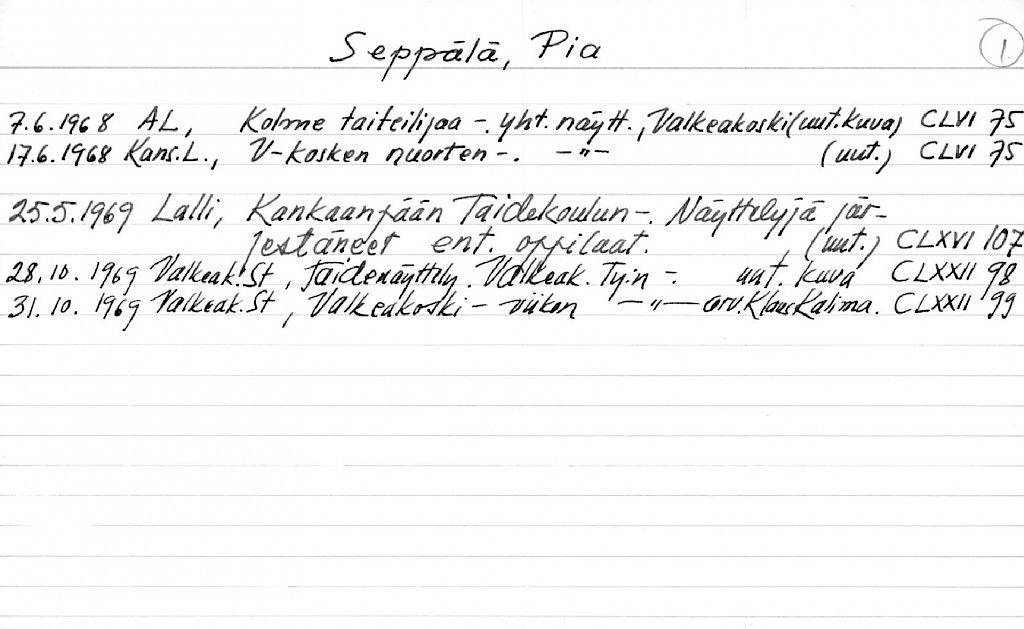 Seppälä, Pia
1.
7.6.1968 AL, Kolme taiteilijaa -. yht. näytt., Valkeakoski (uut. kuva) CLVI 75
17.6.1968 Kans.L., V-kosken nuorten -. -"- (uut.) CLVI 75
25.5.1969 Lalli, Kankaanpään Taidekoulun -. Näyttelyjä jär-
jestäneet ent. oppilaat. (uut.) CLXVI 107
28.10.1969 Valkeak.St, Taidenäyttely. Valkeak. Ty:n -. uut. kuva CLXXII 98
31.10.1969 Valkeak.St, Valkeakoski - viikon -"- arv. Klaus Kalima. CLXXII 99